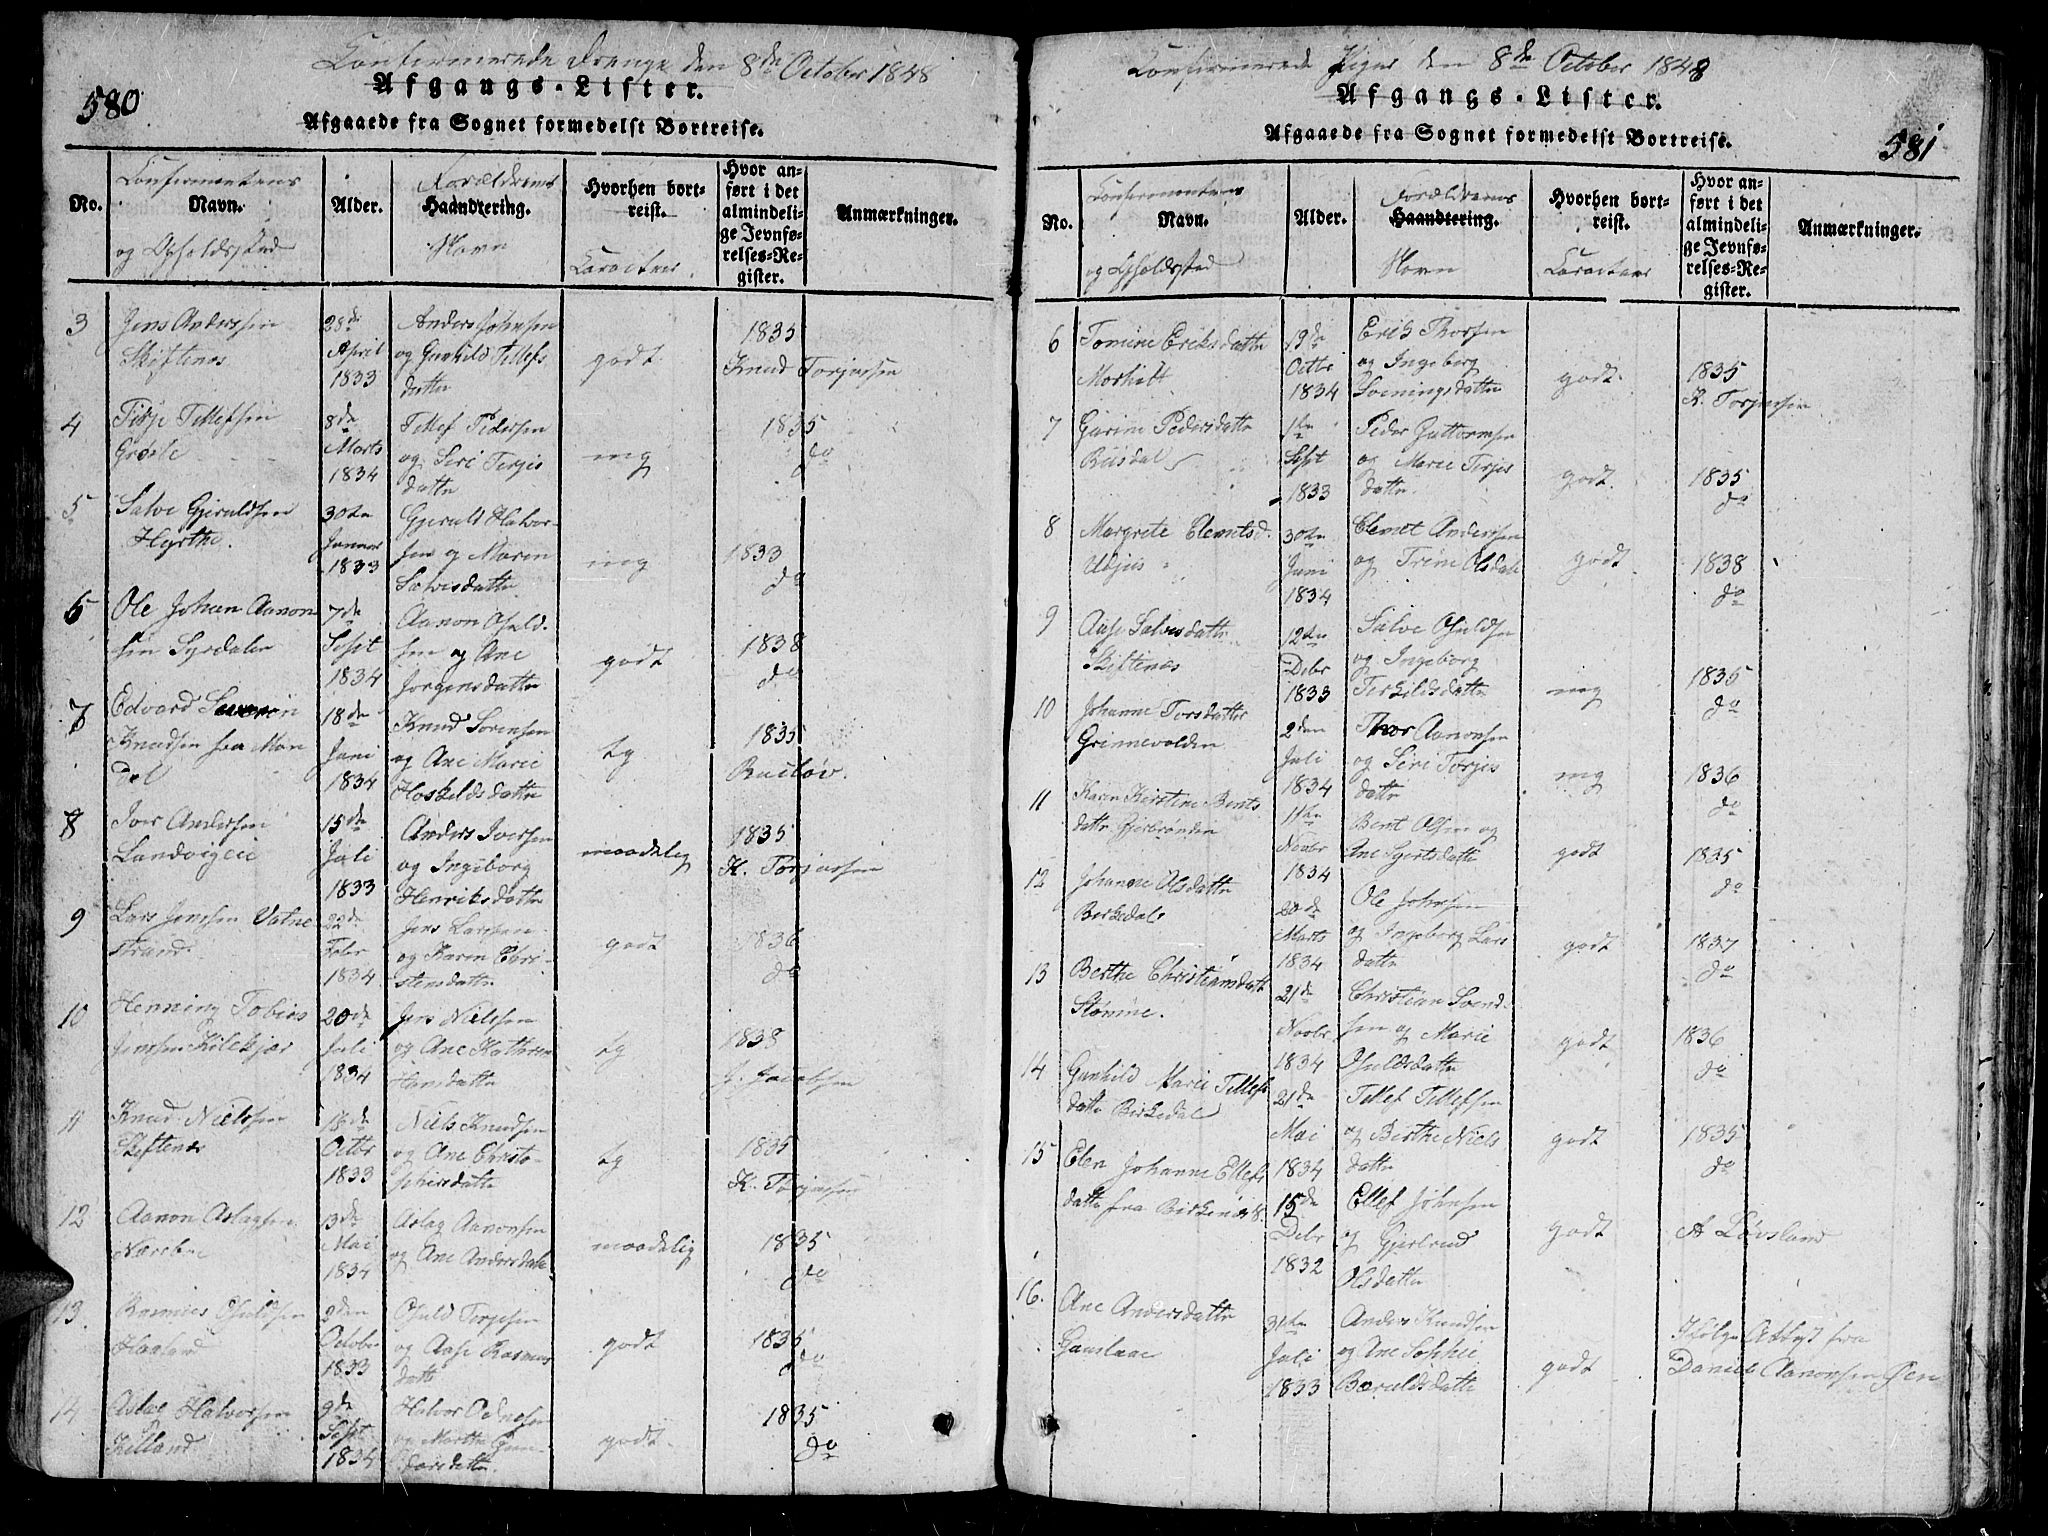 Confirmerede Drenge den 8de October 1848
580
Afgangs-Lister.
Afgaaede fra Sognet formedelst Bortreise.
No.
Confirmantens
Navn.
og Opholdssted
Alder.
Forældrenes
Haandtering.
Navn
Hvorhen bort-
reist.
Caracteer
Hvor an-
ført i det
almindeli-
ge Jevnfø-
relses-Re-
gister.
Anmærkninger.
3
Jens Anderssen
Skiftenes
28de
April
1833
Anders Johnsen
og Gunhild Tellefs
datte
godt
1835
Knud Torjussen
4
Terje Tellefsen
8de
Marts
1834
Tellef Pedersen
og Seri Terjis
datte
mg
1835
do
5
Salve Gjeruldsen
Hyrthe.
30te
Januar
1833
Gjeruld Halvor-
sen og Maren
Salvesdatte
mg
1833
do
6
Ole Johan Aanon
sen Syrdalen
7de
Sept
1834
Aanon Osuld-
sen og Ane
Jorgensdatte
godt
1838
do
7
Edvard Severin
Knudsen fra Man
dal
18de
Juni
1834
Knud Sorensen
og Ane Marie
Hoskeldsdatte
tg
1835
8
Iver Andersen
Landvigeie
15de
Juli
1833
Anders Iversen
og Ingeborg
Henriksdatte
maadelig
1835
K. Torjussen
9
Lars Jenssen Vatne
strand
22de
Febr
1834
Jens Larssen
og Karen Chri-
stensdatte
godt
1836
do
10
Henning Tobias
Jenssen Kilekjær
20de
Juli
1834
Jens Nielsen
og Ane Kathrin
Hansdatte
tg
1838
J. Jacobsen
11
Knud Nielssen
Skiftenes
18de
Octbr
1833
Niels Knudsen
og Ane Christo-
phersdatte
tg
1835
K. Torjussen
12
Aanon Aslagsen
Nærebøe
13de
Mai
1834
Aslag Aanonsen
og Ane Andersdatte
maadelig
1835
do
13.
Rasmus Osuldsen
Haaland
2den
October
1833
Osuld Terjesen
og Aase Rasmus
datte
godt
1835
do
14
Aslac Halvorsen
Killand
9de
Sept
1834
Halvor Ednesen
og Marthe Gun-
darsdatte
godt
1835
do
Confirmerede Piger den 8de October 1848
581
Afgangs-Lister.
Afgaaede fra Sognet formedelst Bortreise.
No.
Confirmantens
Navn.
og Opholdsted
Alder.
Forældrenes
Haandtering.
Navn
Hvorhen bort-
reist.
Caracteer
Hvor an-
ført i det
almindeli-
ge Jevnfø-
relses-Re-
gister.
Anmærkninger.
6
Tomine Eriksdatte
Morholt
19de
Octbr
1834
Erik Thorsen
og Ingeborg
Loveningsdatte
godt.
1835
K. Torjussen
7
Gurine Pedersdatte
Risdal
1ste
Sept
1833
Peder Guttormsen
og Marie Terjis
datte.
godt.
1835
do
8
Margrete Clemetsd.
Udjus
30te
Juni
1834
Clemet Anderssen
og Trine Olsdatte
godt
1838
do
9
Aase Salvesdatte
Skiftenes
12de
Debr
1833
Salve Osuldsen
og Ingeborg
Terkildsdatte
mg
1835
do
10
Johanne Torsdatter
Grimevolden
2den
Juli
1834
Thor Aanonsen
og Seri Terjis
datte
mg
1836
do
11
Karen Kirstine Bents
datte Gjerbrønden
11te
Novbr
1834
Bent Olsen og
Ane Sjertsdatte
godt
1835
do
12
Johanne Olsdatte
Birkedal
20de
Marts
1834
Ole Johnsen
og Ingeborg Lars
datte
godt
1837
do
13
Berthe Christiansdatt
Stømme.
21de
Novbr
1834
Christian Svend-
sen og Marie
Osuldsdatte
godt
1836
do
14
Gunhild Marie Tellefs
datte Birkedal
21de
Mai
1834
Tellef Tellefsen
og Birthe Niels
datte
godt
1835
do
15
Elen Johanne Ellefs
datte fra Birkenæs S.
15de
Debr
1832
Ellef Johnsen
og Gjertrud
Olsdatte
godt
A Løvsland
16.
Ane Andersdatte
31te
Juli
1833
Anders Knudsen
og Ane Sophie
Beruldsdatte
godt
Ifølge Attest fra
Daniel Aanonsen Øen